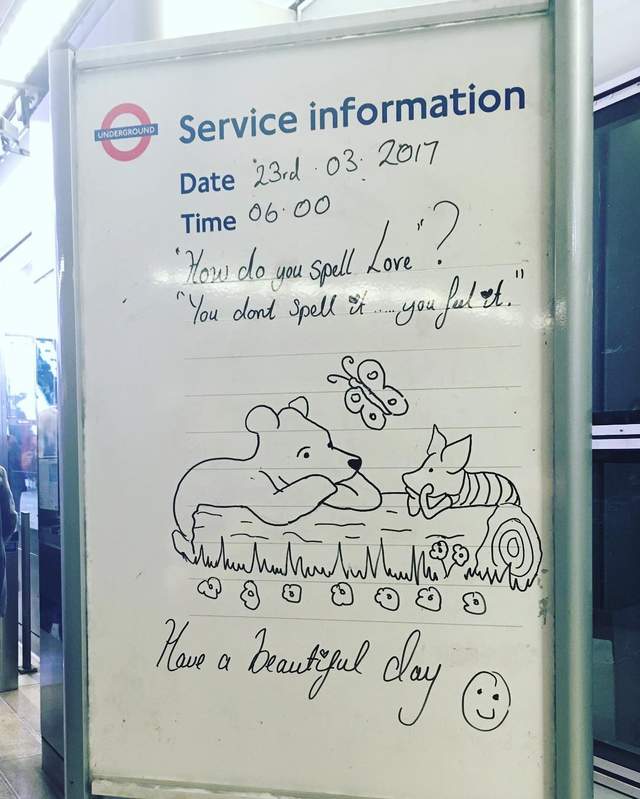 UNDERGROUND
Service information
Date 23rd . 03. 2017
Time 06.00
"How do you spell Love"?
"You dont spell it ..... you feel it."
Have a beautiful day